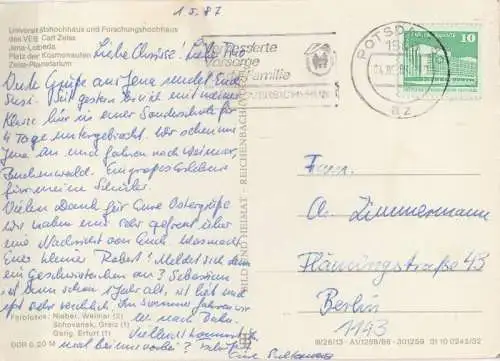 1.5.87
Universitätshochhaus und Forschungshochhaus
des VEB Carl Zeiss
Jena-Lobeda
Platz der Kosmonauten
Zeiss-Planetarium
Liebe Christine, Liebe
Viele Grüße aus Jena sendet Euch
Susi. Seit gestern bin ich mit meiner
Klasse hier in einer Sonderschule für
4 Tage untergebracht. Wir schauen uns
Jena an und fahren nach Weimar,
Buchenwald. Ein großes Erlebnis
für meine Schüler.
Vielen Dank für Eure Ostergrüße
Wir haben uns sehr gefreut über
eine Nachricht von Euch. Was macht
Euer kleiner Robert? Meldet sich denn
ein Geschwisterchen an? Sebastian
ist nun schon 1 Jahr alt, ist lieb und
sehr niedlich. Im Sommer fahren wir
wir nach
Vielleicht kommt Ihr
mal bei uns vorbei?
Eure
Fotos: Nieber, Weimar (2)
Schovansk, Greiz (1)
Garig, Erfurt (1)
DDR 0,20 M
BILD UND HEIMAT · REICHENBACH
Verbesserte
Vorsorge
Familie
POTSDAM
10
Fam.
Ch. Zimmermann
Flämingstraße 43
Berlin
1143
III/26/13 A1/1259/86 301259 01 10 0243/32